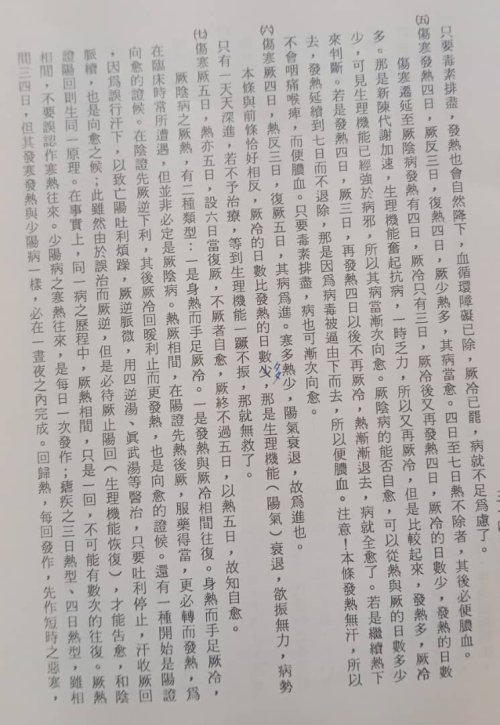 只要毒素排盡，發熱也會自然降下，血循環障礙已除，厥冷已罷，病就不足爲慮了。
㈤傷寒發熱四日，厥反三日，復熱四日，厥少熱多，其病當愈。四日至七日熱不除者，其後必便膿血。
傷寒遷延至厥陰病發熱有四日，厥冷只有三日，厥冷後又再發熱四日，厥冷的日數少，發熱的日數
多。那是新陳代謝加速，生理機能奮起抗病，一時乏力，所以又再厥冷，但是比較起來，發熱多，厥冷
少，可見生理機能已經強於病邪，所以其病當漸次向愈。厥陰病的能否自愈，可以從熱與厥的日數多少
來判斷。若是發熱四日，厥三日，再發熱四日以後不再厥冷，熱漸漸退去，病就全愈了。若是繼續熱下
去，發熱延續到七日而不退除，那是因爲病毒被逼由下而去，所以便膿血。注意！本條發熱無汗，所以
不會咽痛喉痺，而便膿血。只要毒素排盡，病也可漸次向愈。
㈥傷寒厥四日，熱反三日，復厥五日，其病爲進。寒多熱少，陽氣衰退，故爲進也。
本條與前條恰好相反，厥冷的日數比發熱的日數多，那是生理機能（陽氣）衰退，欲振無力，病勢
只有一天天深進，若不予治療，等到生理機能一蹶不振，那就無救了。
㈦傷寒厥五日，熱亦五日，設六日當復厥，不厥者自愈，厥終不過五日，以熱五日，故知自愈。
厥陰病之厥熱，有二種類型：一是身熱而手足厥冷。一是發熱與厥冷相間往復。身熱而手足厥冷，
在臨床時常所遭遇，但並非必定是厥陰病。熱厥相間，在陽證先熱後厥，服藥得當，更必轉而發熱，爲
向愈的證候。在陰證先厥逆下利，其後厥冷回暖利止而更發熱，也是向愈的證候。還有一種開始是陽證
，因爲誤行汗下，以致亡陽吐利煩躁，厥逆脈微，用四逆湯、眞武湯等醫治，只要吐利停止，汗收厥回
脈續，也是向愈之候；此雖然由於誤治而厥逆，但是必待厥止陽回（生理機能恢復），才能告愈，和陰
證陽回則生同一原理。在事實上，同一病之歷程中，厥熱相間，只是一回，不可能有數次的往復。厥熱
相間，不要誤認作寒熱往來。少陽病之寒熱往來，是每日一次發作；瘧疾之三日熱型、四日熱型，雖相
間三四日，但其發寒發熱與少陽病一樣，必在一晝夜之內完成。回歸熱，每回發作，先作短時之惡寒，